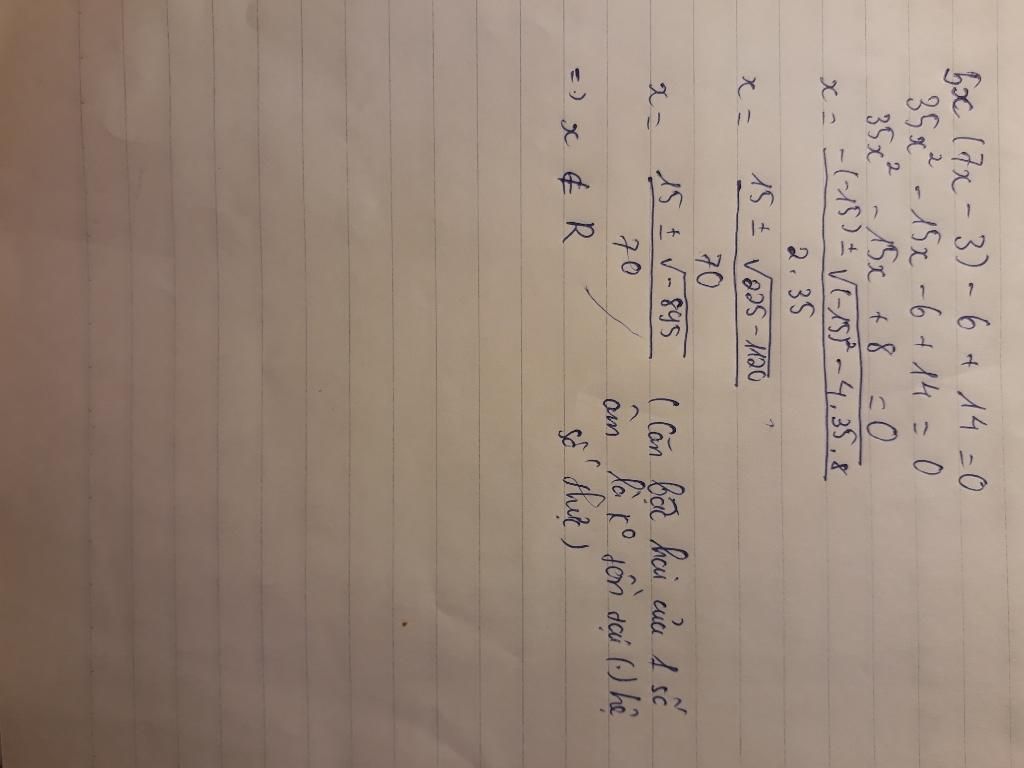 5x (7x - 3) - 6 + 14 = 0
35x² - 15x - 6 + 14 = 0
35x² - 15x + 8 = 0
x = -(-15) ± √(-15)² - 4.35.8
2.35
x = 15 ± √225 - 1120
70
x = 15 ± √-895 (Căn bậc hai của 1 số
70 âm là ko tồn tại (.) hệ
=> x ∉ R số thực)